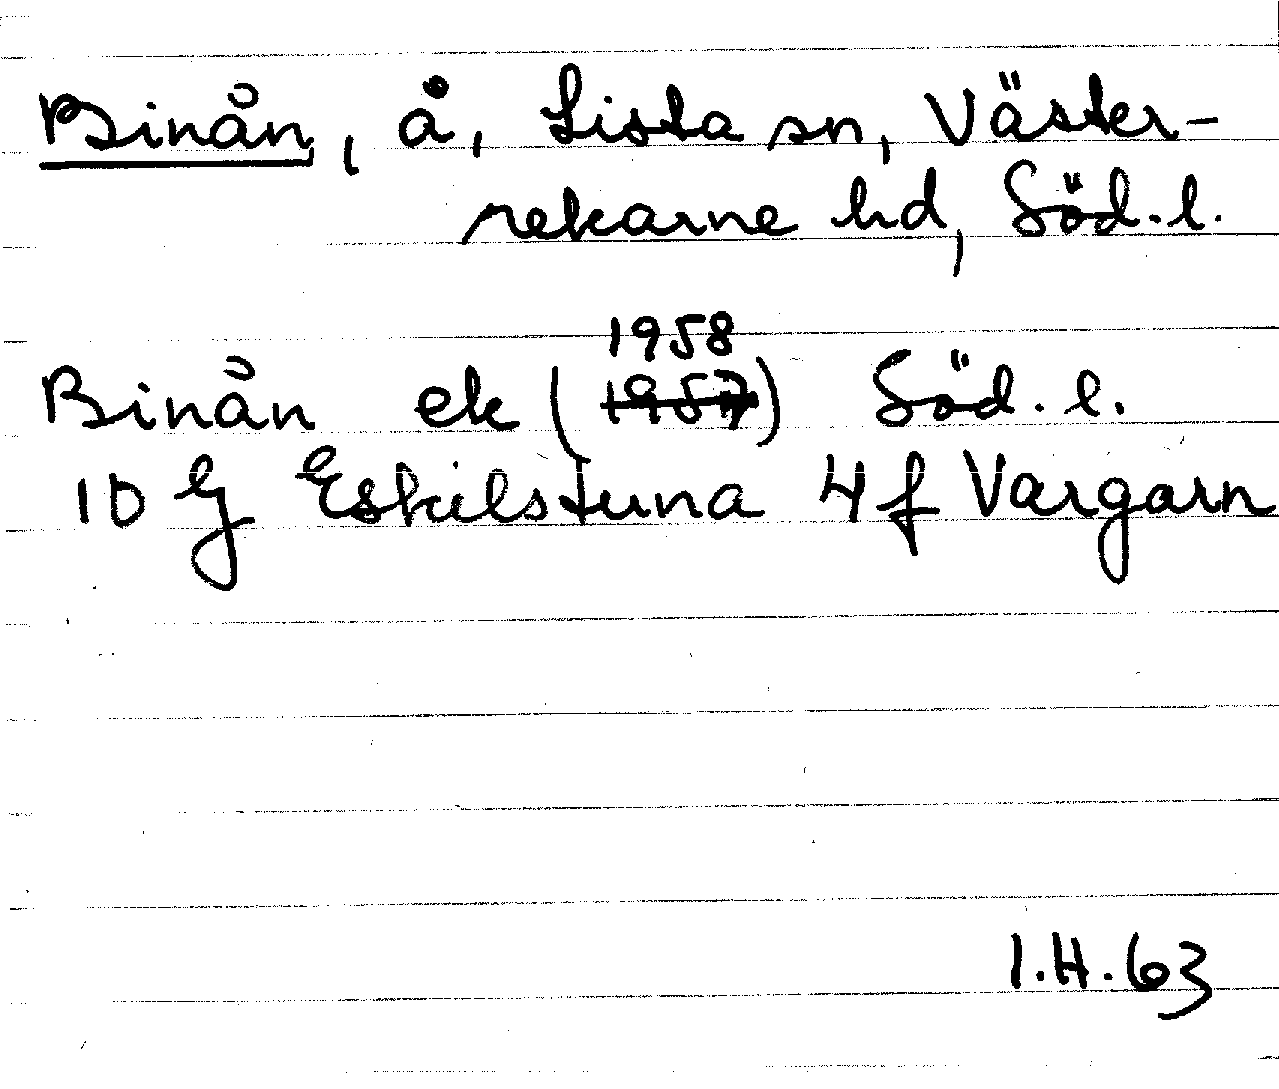 Binån, å, Lista sn, Väster-
rekarne hd, Söd.l.
1958
Binån ek (1957) Söd.l.
10 G Eskilstuna 4 f Vargarn
I.H.63